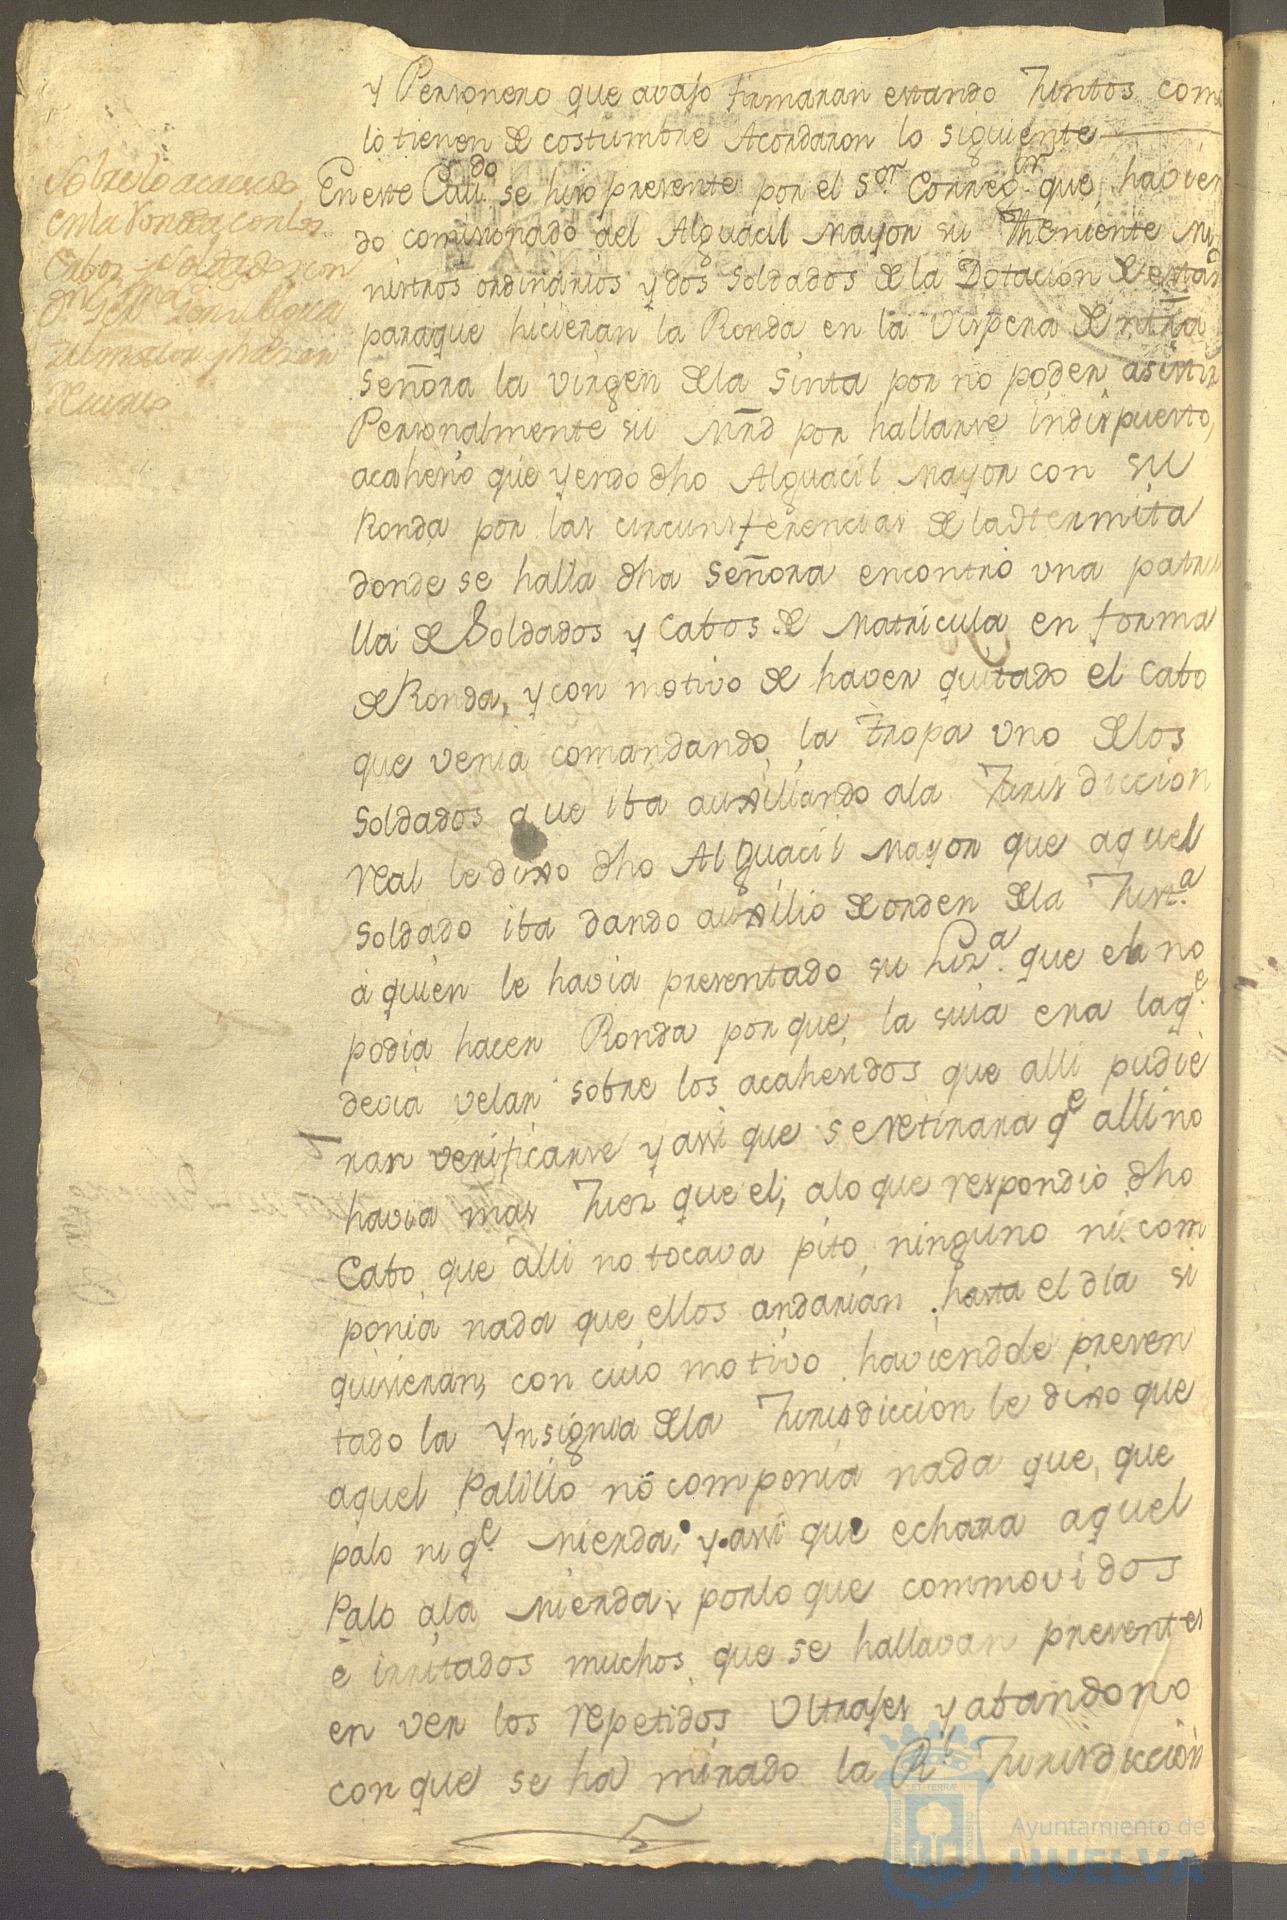 y Personero que avajo firmaran estando Juntos como
lo tienen de costumbre Acordaron lo siguiente
Sobre lo acaecido
en la Ronda con los
Cabos y soldados
En este Cavdo. se hiso presente por el Sor. Correg.or que havien
do comisionado al Alguacil Mayor su Theniente Mi
nistros ordinarios y dos Soldados de la Dotacion de esta
paraque hicieran la Ronda en la vispera de ntra
Señora la virgen de la Sinta por no poder asistir
Personalmente su Mrd por hallarse indispuesto,
acahesio que yendo dho Alguacil Mayor con su
Ronda por las circunsferencias de la dtermita
donde se halla dha Señora encontró una patru
lla de Soldados y Cabos de Matricula en forma
de Ronda, y con motivo de haver quitado el Cabo
que venia comandando la tropa uno de los
Soldados que iba auxiliando ala Jurisdiccion
real le dixo dho Alguacil Mayor que aquel
Soldado iba dando auxilio de orden de la Just.a
á quien le havia presentado su Liz.a que el no
podia hacer Ronda porque la suia era la q.e
devia velar sobre los acahesidos que alli pudie
ran verificarse y assi que se retirara q.e alli no
havia mas Juez que el; alo que respondió dho
Cabo que alli no tocava pito ninguno ni com
ponia nada que ellos andarian hasta el dia si
quisieran; con cuio motivo haviendole presen
tado la Ynsignia de la Jurisdiccion le dixo que
aquel Palillo no componia nada que, que
palo ni q.e mierda, y assi que echara aquel
Palo ala mierda; porlo que commovidos
e irritados muchos que se hallavan presentes
en ver los repetidos Ultrajes y abandono
con que se ha mirado la Rl. Jurisdiccion
Ayuntamiento de
HUELVA